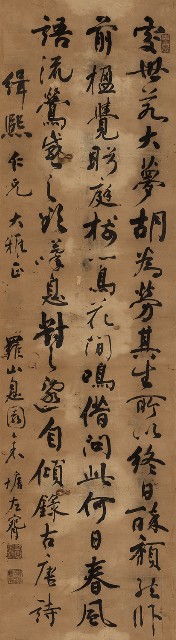 處世若大夢胡為勞其生所以終日醉頹然臥
前楹覺眄庭一鳥花間鳴借問此何日春風
語流鶯感之欲嘆息對之還自傾錄古唐詩
緝熙仁兄大雅正
羅山息園